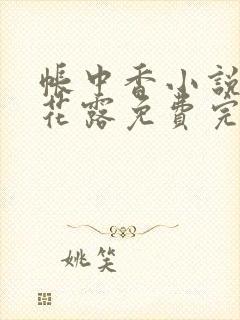 帳中香小說
花露免費完
姚笑